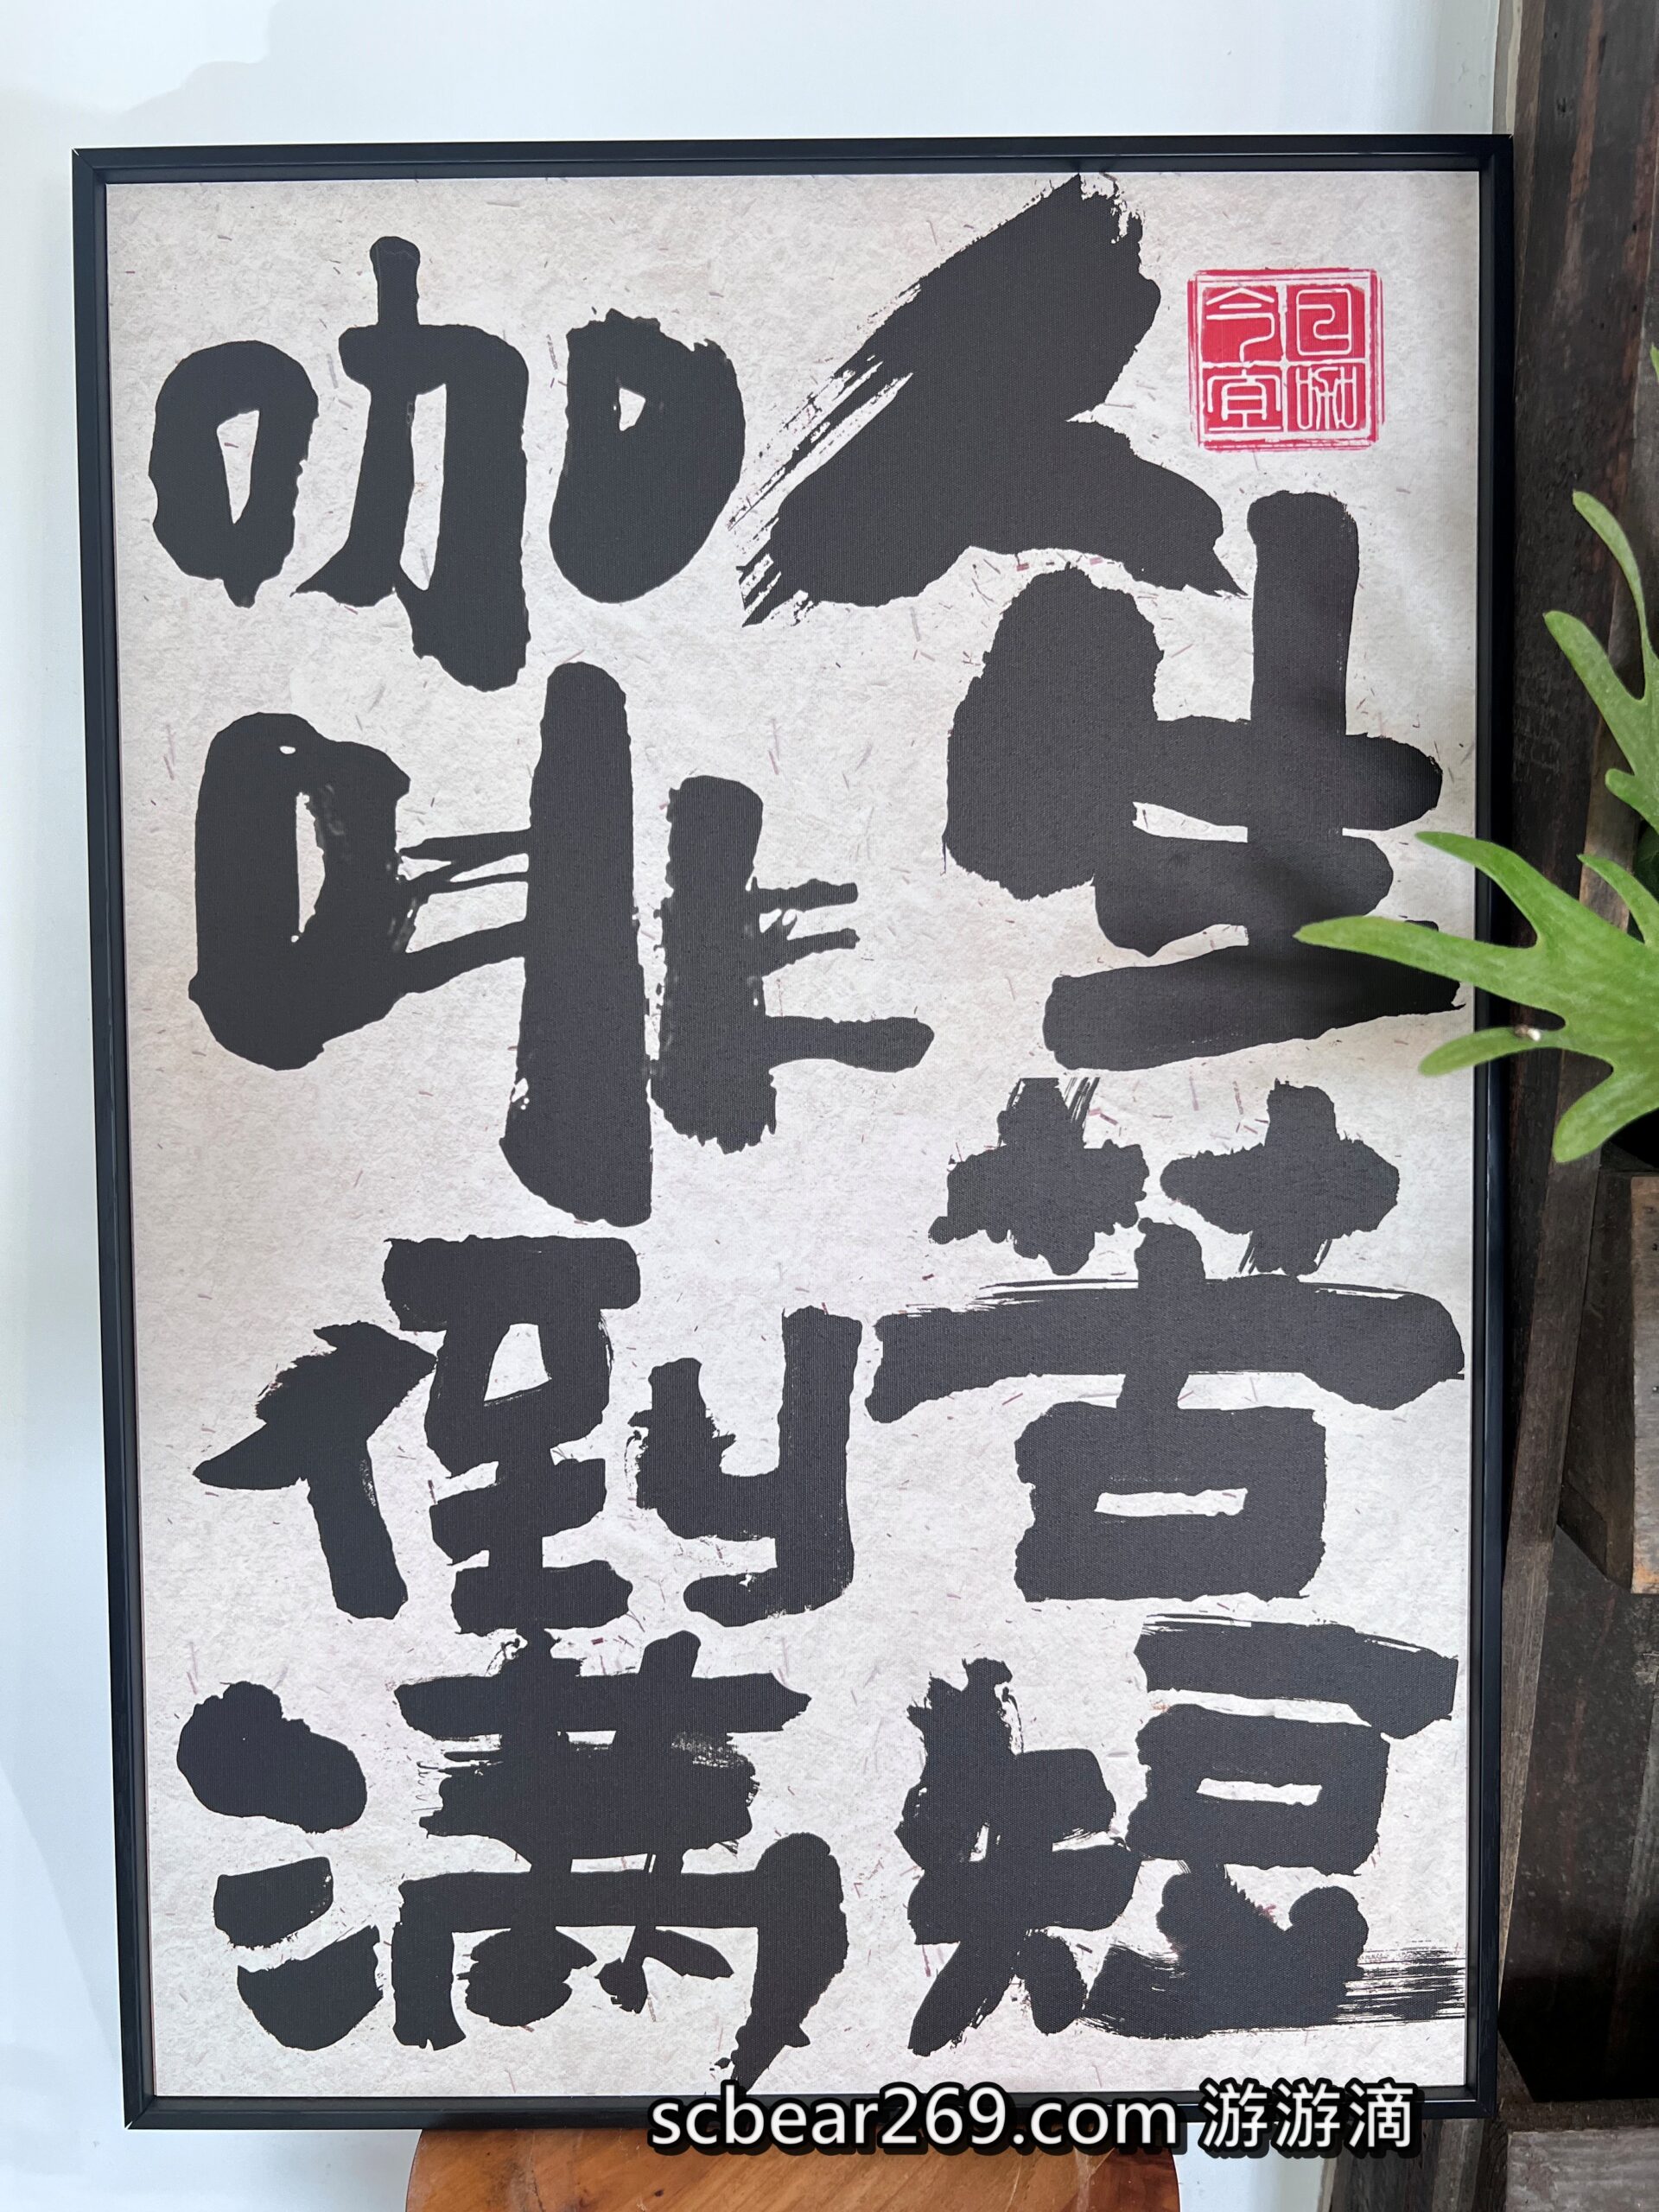 人生苦短
咖啡倒滿
今日
宜
scbear269.com 游游滴